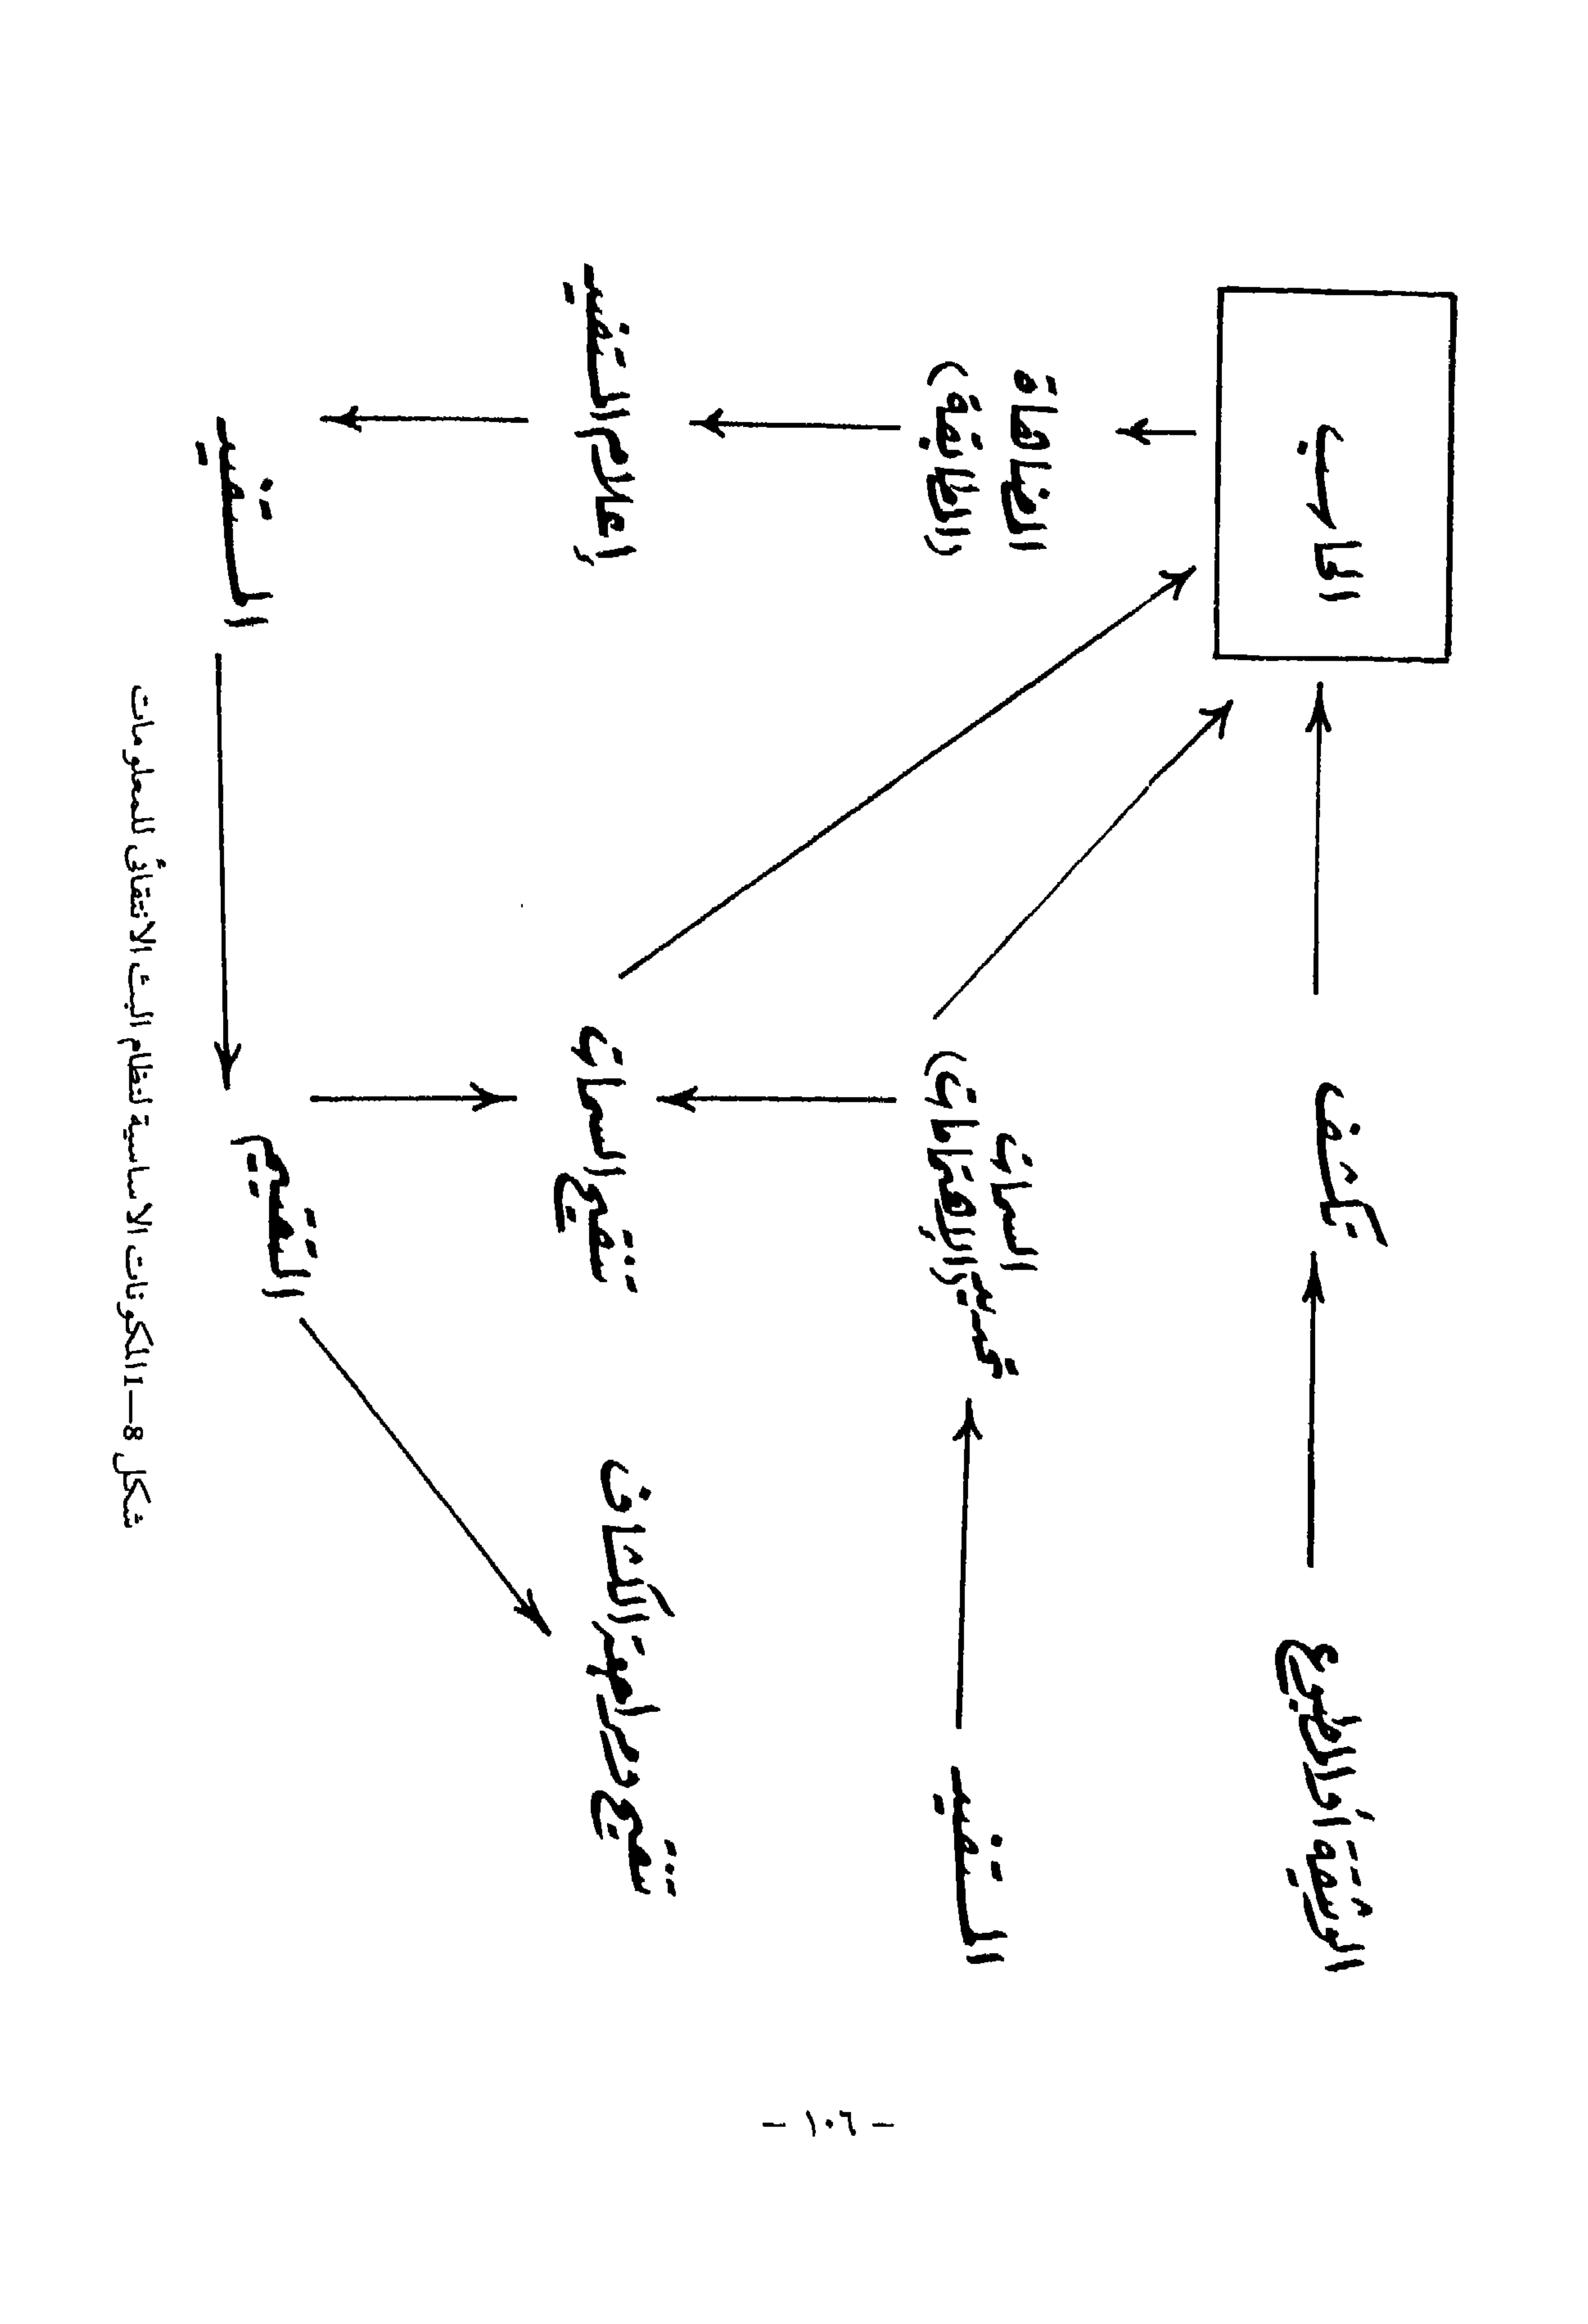 الوثيقة أو الموضوع
كشاف
الحاسب
المستفيد
تحرير السمات
(الاهتمامات)
المضاهاة
(المطابقة)
تنقيح السمات
إعلام المستفيد
التقييم
المستفيد
شكل 8—1 المكونات الاساسية لنظام البث الانتقائى للمعلومات
- ١٠٦ -